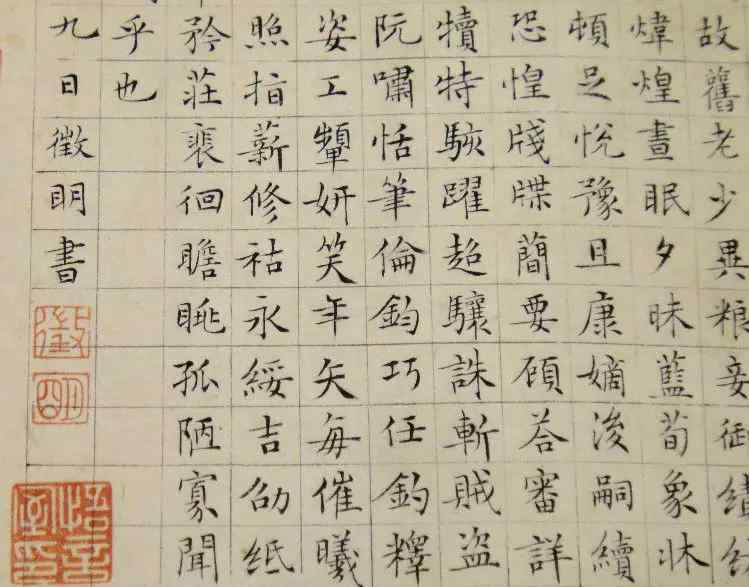 故舊老少異粮妾御績
煒煌晝眠夕昧藍荀象牀
頓足悅豫且康嫡後嗣續
恐惶牋牒簡要顧答審詳
犢特駭躍超驤誅斬賊盜
阮嘯恬筆倫鈞巧任釣釋
姿工顰妍笑年矢每催曦
照指薪修祜永綏吉劭紙
矜莊裴徊瞻眺孤陋寡聞
乎也
九日徵明書
徵明
悟言室印